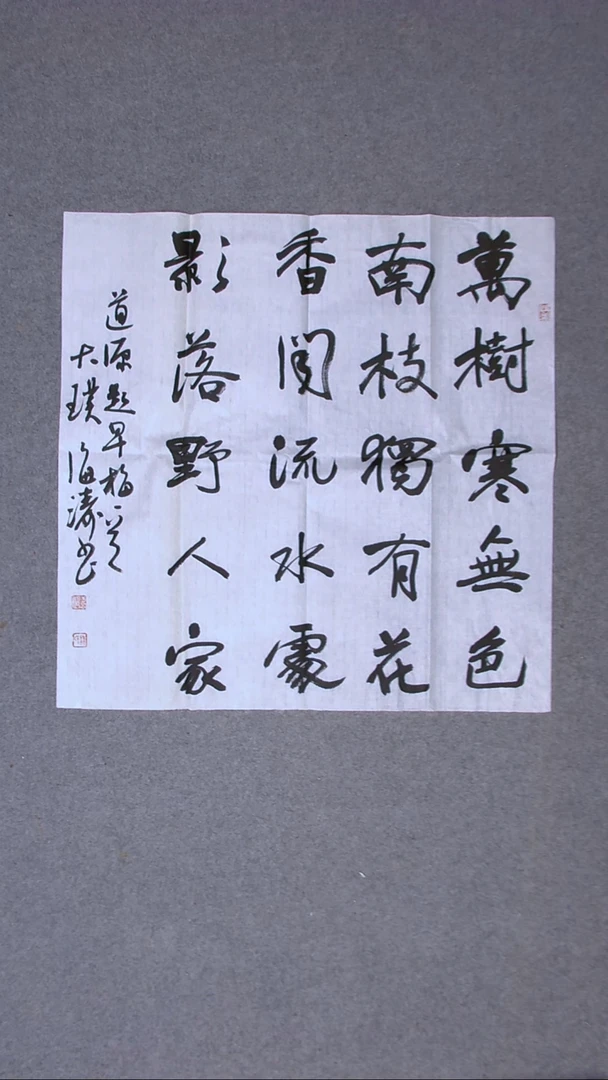 萬樹寒無色
南枝獨有花
香聞流水處
影落野人家
道源題早梅一首
大璞海濤書